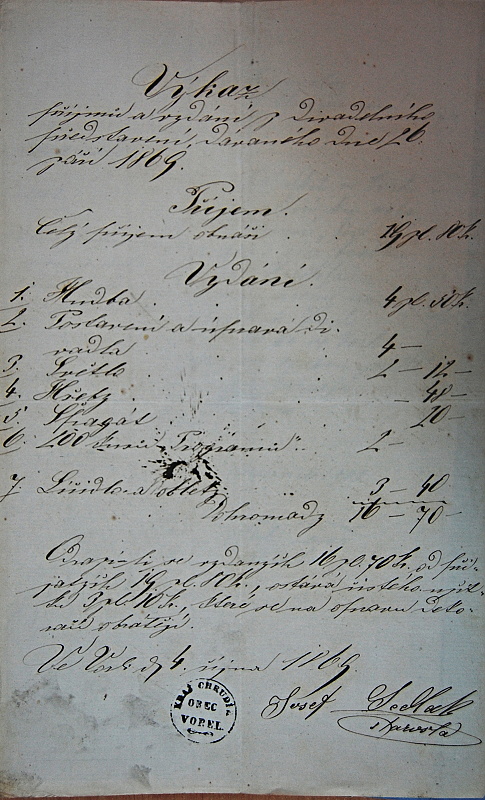 Výkaz
příjmů a vydání z divadelního
představení, dávaného dne 26.
září 1869.
Příjem.
Celý příjem obnáší . . . 19 zl. 80 kr.
Vydání.
1. Hudba . . . 4 zl. 50 kr.
2. Postavení a úprava di-
vadla . . . 4 —
3. Světlo . . . 2 — 12 —
4. Hřeby . . . — 48 —
5. Špagát . . . 20 —
6. 200 Programů . . 2 —
7. 3 — 40
Dohromady 16 — 70 —
Odrazí-li se vydaných 16 zl. 70 kr. od při-
jatých 19 zl. 80 kr., ostává čistého výtěž-
ku 3 zl. 10 kr., které se na opravu deko-
rací obrátějí.
4. října 1869.
KRAJ CHRUDIM
OBEC
VOREL.
Josef Sedlak
starosta